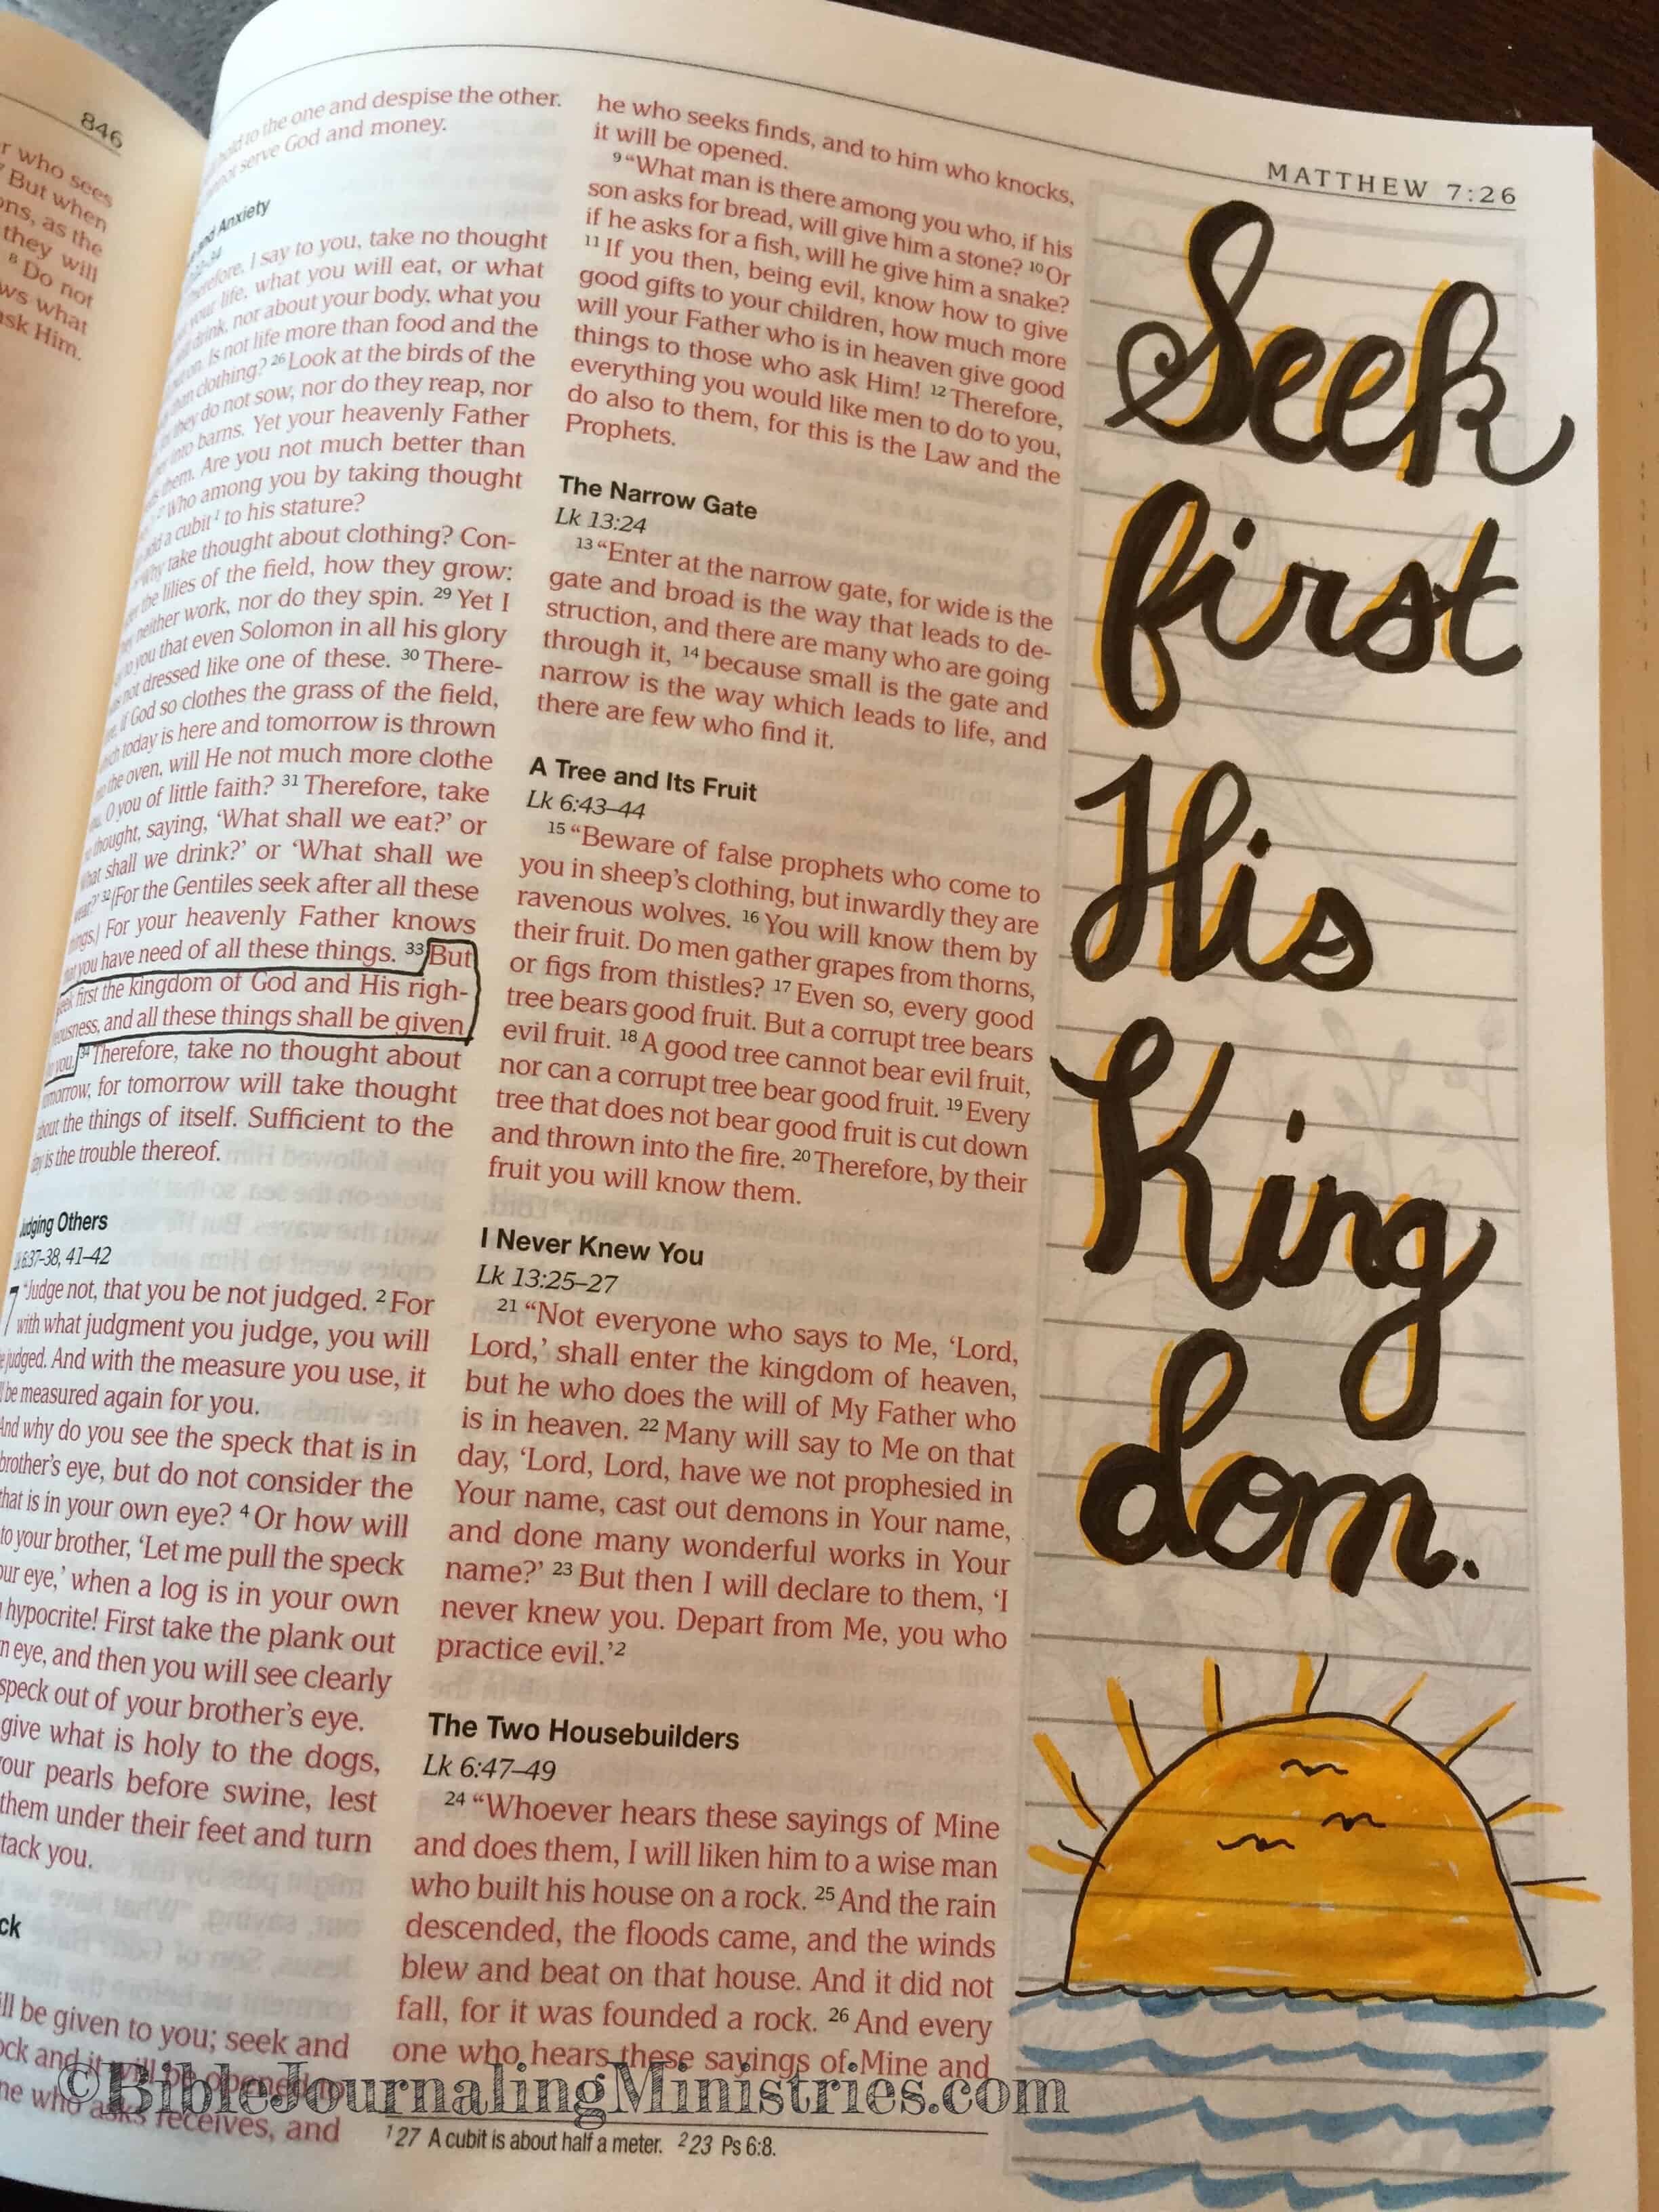 846
r who sees
But when
ons, as the
they will
8 Do not
ws what
ask Him.
MATTHEW 7:26
hold to the one and despise the other.
cannot serve God and money.
and Anxiety
Therefore, I say to you, take no thought
your life, what you will eat, or what
will drink, nor about your body, what you
put on. Is not life more than food and the
than clothing? 26 Look at the birds of the
they do not sow, nor do they reap, nor
into barns. Yet your heavenly Father
them. Are you not much better than
27 Who among you by taking thought
add a cubit1 to his stature?
Why take thought about clothing? Con-
the lilies of the field, how they grow:
they neither work, nor do they spin. 29 Yet I
to you that even Solomon in all his glory
was not dressed like one of these. 30 There-
if God so clothes the grass of the field,
which today is here and tomorrow is thrown
the oven, will He not much more clothe
O you of little faith? 31 Therefore, take
thought, saying, ‘What shall we eat?’ or
What shall we drink?’ or ‘What shall we
wear?’ 32 (For the Gentiles seek after all these
things.) For your heavenly Father knows
that you have need of all these things. 33 But
seek first the kingdom of God and His righ-
eousness, and all these things shall be given
to you. 34 Therefore, take no thought about
tomorrow, for tomorrow will take thought
about the things of itself. Sufficient to the
day is the trouble thereof.
Judging Others
Lk 6:37–38, 41–42
7 “Judge not, that you be not judged. 2 For
with what judgment you judge, you will
be judged. And with the measure you use, it
be measured again for you.
And why do you see the speck that is in
brother’s eye, but do not consider the
that is in your own eye? 4 Or how will
to your brother, ‘Let me pull the speck
our eye,’ when a log is in your own
hypocrite! First take the plank out
n eye, and then you will see clearly
speck out of your brother’s eye.
give what is holy to the dogs,
our pearls before swine, lest
them under their feet and turn
tack you.
ck
ll be given to you; seek and
ock and it will be opened to
ne who asks receives, and
he who seeks finds, and to him who knocks,
it will be opened.
9 “What man is there among you who, if his
son asks for bread, will give him a stone? 10 Or
if he asks for a fish, will he give him a snake?
11 If you then, being evil, know how to give
good gifts to your children, how much more
will your Father who is in heaven give good
things to those who ask Him! 12 Therefore,
everything you would like men to do to you,
do also to them, for this is the Law and the
Prophets.
The Narrow Gate
Lk 13:24
13 “Enter at the narrow gate, for wide is the
gate and broad is the way that leads to de-
struction, and there are many who are going
through it, 14 because small is the gate and
narrow is the way which leads to life, and
there are few who find it.
A Tree and Its Fruit
Lk 6:43–44
15 “Beware of false prophets who come to
you in sheep’s clothing, but inwardly they are
ravenous wolves. 16 You will know them by
their fruit. Do men gather grapes from thorns,
or figs from thistles? 17 Even so, every good
tree bears good fruit. But a corrupt tree bears
evil fruit. 18 A good tree cannot bear evil fruit,
nor can a corrupt tree bear good fruit. 19 Every
tree that does not bear good fruit is cut down
and thrown into the fire. 20 Therefore, by their
fruit you will know them.
I Never Knew You
Lk 13:25–27
21 “Not everyone who says to Me, ‘Lord,
Lord,’ shall enter the kingdom of heaven,
but he who does the will of My Father who
is in heaven. 22 Many will say to Me on that
day, ‘Lord, Lord, have we not prophesied in
Your name, cast out demons in Your name,
and done many wonderful works in Your
name?’ 23 But then I will declare to them, ‘I
never knew you. Depart from Me, you who
practice evil.’2
The Two Housebuilders
Lk 6:47–49
24 “Whoever hears these sayings of Mine
and does them, I will liken him to a wise man
who built his house on a rock. 25 And the rain
descended, the floods came, and the winds
blew and beat on that house. And it did not
fall, for it was founded a rock. 26 And every
one who hears these sayings of Mine and
1 27 A cubit is about half a meter. 2 23 Ps 6:8.
Seek
first
His
King
dom.
©BibleJournalingMinistries.com